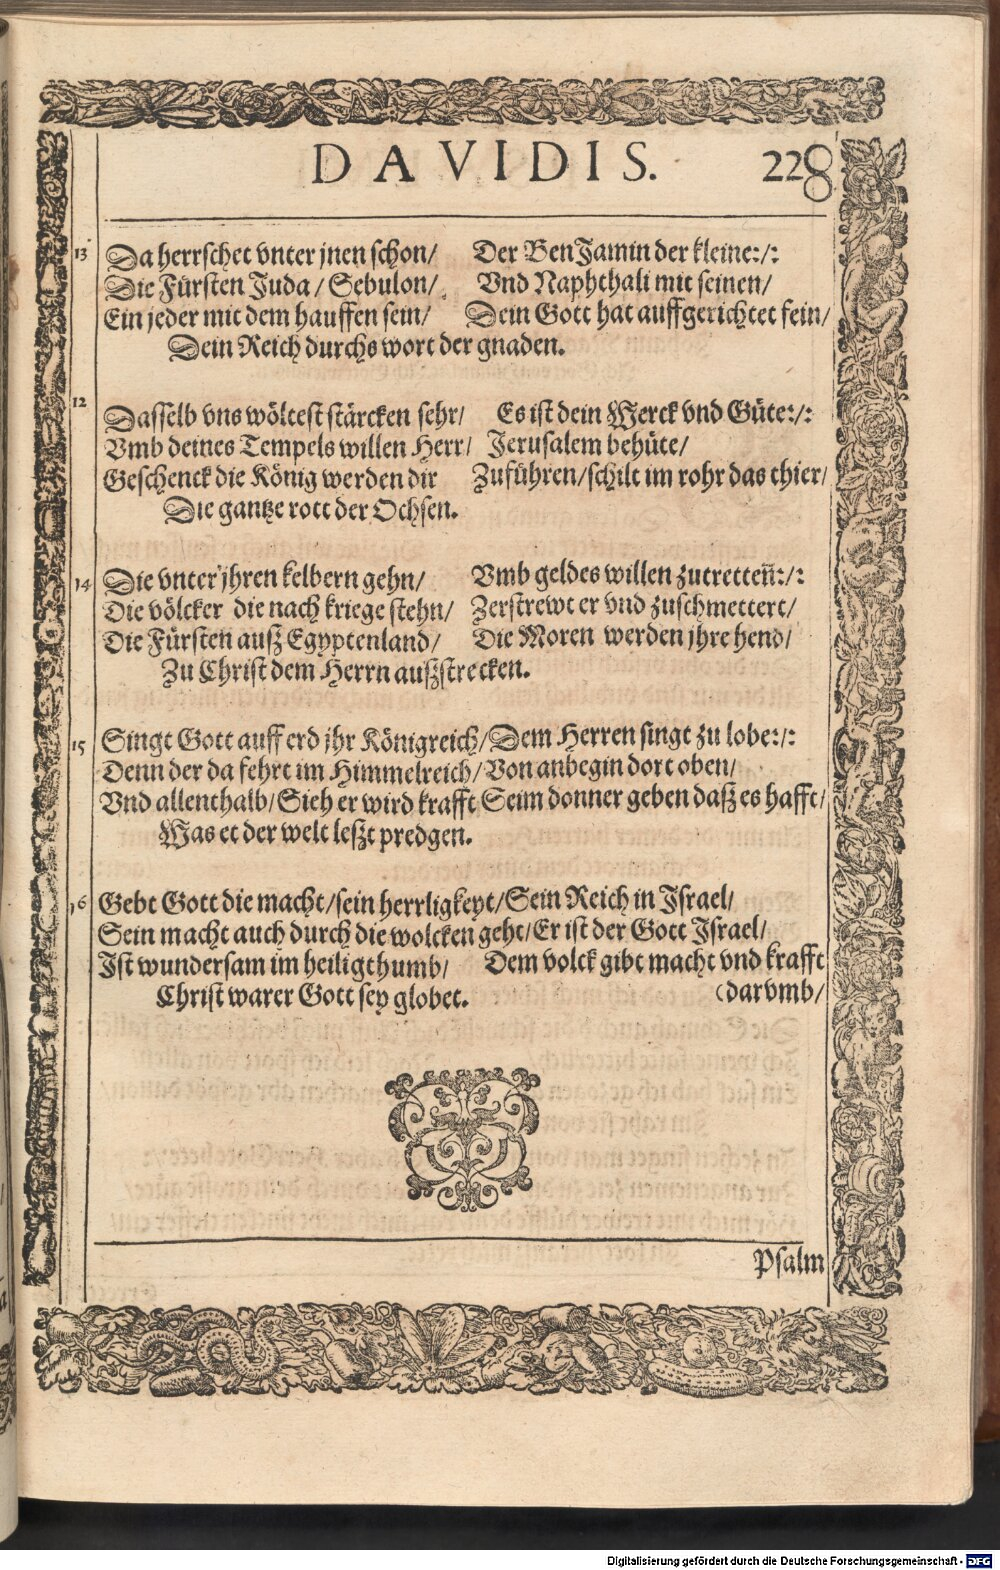 DAVIDIS. 228
13 Da herrschet vnter jnen schon/ Der BenJamin der kleine:/:
Die Fürsten Juda/ Sebulon/ Vnd Naphthali mit seinen/
Ein jeder mit dem hauffen sein/ Dein Gott hat auffgerichtet fein/
Dein Reich durchs wort der gnaden.
12 Dasselb vns wöltest stärcken sehr/ Es ist dein Werck vnd Güte:/:
Vmb deines Tempels willen Herr/ Jerusalem behüte/
Geschenck die König werden dir Zuführen/schilt im rohr das thier/
Die gantze rott der Ochsen.
14 Die vnter jhren kelbern gehn/ Vmb geldes willen zutretten̄:/:
Die völcker die nach kriege stehn/ Zerstrewt er vnd zuschmettert/
Die Fürsten auß Egyptenland/ Die Moren werden jhre hend/
Zu Christ dem Herrn außstrecken.
15 Singt Gott auff erd jhr Königreich/ Dem Herren singt zu lobe:/:
Denn der da fehrt im Himmelreich/ Von anbegin dort oben/
Vnd allenthalb/ Sieh er wird krafft/ Seim donner geben daß es hafft/
Was et der welt leßt predgen.
16 Gebt Gott die macht/sein herrligkeyt/ Sein Reich in Israel/
Sein macht auch durch die wolcken geht/ Er ist der Gott Israel/
Ist wundersam im heiligthumb/ Dem volck gibt macht vnd krafft
Christ warer Gott sey globet. (darvmb/
Psalm
Digitalisierung gefördert durch die Deutsche Forschungsgemeinschaft - DFG